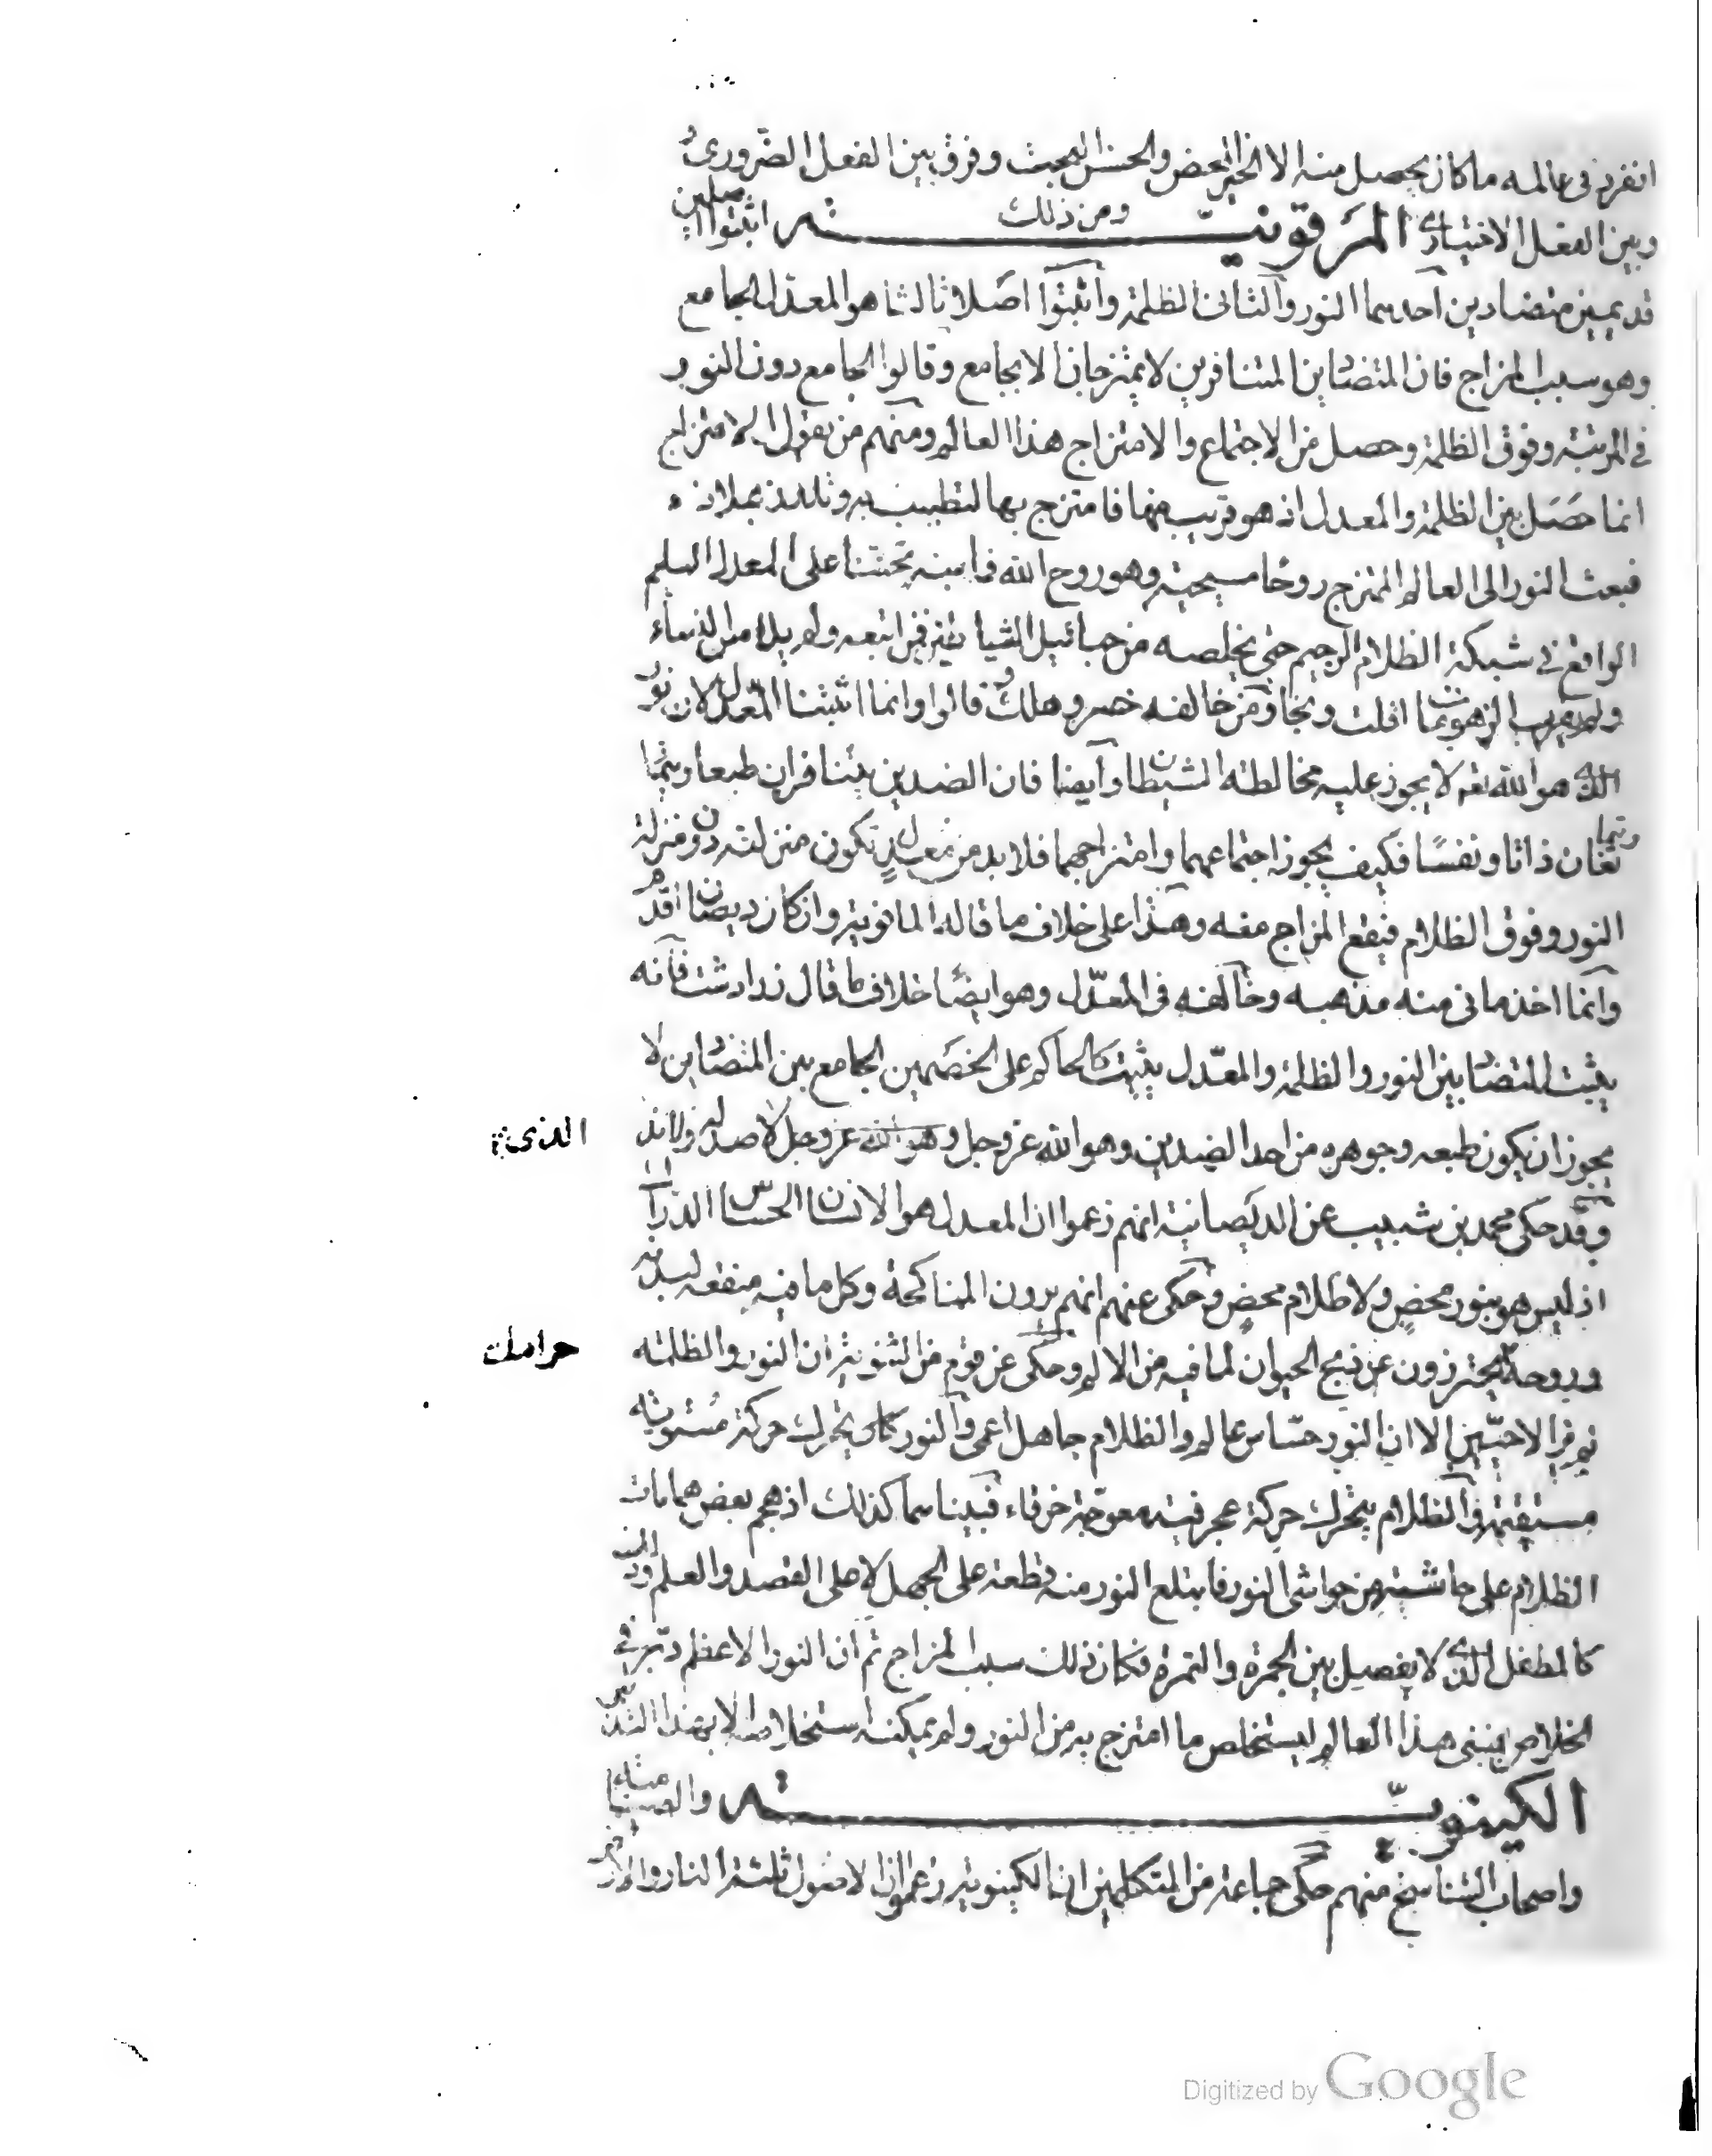 انفرد فى عالمه ما كان يحصل منه الا الخير المحض والحسن البحت وفرق بين الفعل الضرورى
وبين الفعل الاختيارى ومن ذلك المرقونيّة اثبتوا اصلين
قديمين متضادين احدهما النور والثانى الظلمة واثبتوا اصلا ثالثا هو المعدّل الجامع
وهو سبب المزاج فان المتضادين المتنافرين لا يمتزجان الا بجامع وقالوا الجامع دون النور
فى المرتبة وفوق الظلمة وحصل من الاجتماع والامتزاج هذا العالم ومنهم من يقول الامتزاج
انما حصل بين الظلمة والمعدل اذ هو قريب منها فامتزج بها لتطيب به وتلتذ بملاذه
فبعث النور الى العالم الممتزج روحًا مسيحية وهو روح الله وابنه تحننا على المعدل السليم
الواقع فى شبكة الظلام الرجيم حتى يخلصه من حبائيل الشياطين فمن اتبعه ولم يلامس النساء
ولم يقرب الزهومات افلت ونجا ومن خالفه خسر وهلك قالوا وانما اثبتنا المعدّل لان النور
الذى هو الله تعه لا يجوز عليه مخالطة الشيطان وايضا فان الضدين يتنافران طبعا ويتما
نعان ذاتا ونفسًا فكيف يجوز اجتماعهما وامتزاجهما فلا بد من معدلٍ تكون منزلته دون منزلة
ويتما
النور وفوق الظلام فيقع المزاج معه وهذا على خلاف ما قاله المانوية وان كان ديصان اقدم
وانما اخذ مانى منه مذهبه وخالفه فى المعدّل وهو ايضًا خلاف ما قال زرادشت فانه
يثبت التضاد بين النور والظلمة والمعدّل يثبت كالحاكم على الخصمين الجامع بين المتضادين لا
يجوز ان يكون طبعه وجوهره من احد الضدين وهو الله عز وجل وهو الله عز وجل لا ضد له ولا ند
الذى
وقد حكى محمد بن شبيب عن الديصانية انهم زعموا ان المعدل هو الانسان الحساس الدراك
اذ ليس هو بنور محضٍ ولا ظلام محضٍ وحكى عنهم انهم يرون المناكحة وكل ما فيه منفعة لبدنه
وروحه ويحترزون عن ذبح الحيوان لما فيه من الالم وحكى عن قوم من الثنوية ان النور والظلمة
حرامان
لم يزالا حيّين الا ان النور حسّاس عالم والظلام جاهل اعمى والنور يتحرك حركة مستوية
مستقيمة والظلام يتحرك حركة عجرفية معوجة خرقاء فبينا هما كذلك اذ هجم بعض همامات
الظلام على حاشية من حواشى النور فابتلع النور منه قطعة على الجهل لا على القصد والعلم وذلك
كالطفل الذى لا يفصل بين الجمرة والتمرة فكان ذلك سبب المزاج ثم ان النور الاعظم دبّر فى
الخلاص فبنى هذا العالم ليستخلص ما امتزج به من النور ولم يمكنه استخلاصه الا بهذا التدبير
الكينويّة والصيامية
واصحاب التناسخ منهم حكى جماعة من المتكلمين ان الكينوية زعموا ان الاصول ثلثة النار والارض
Digitized by Google